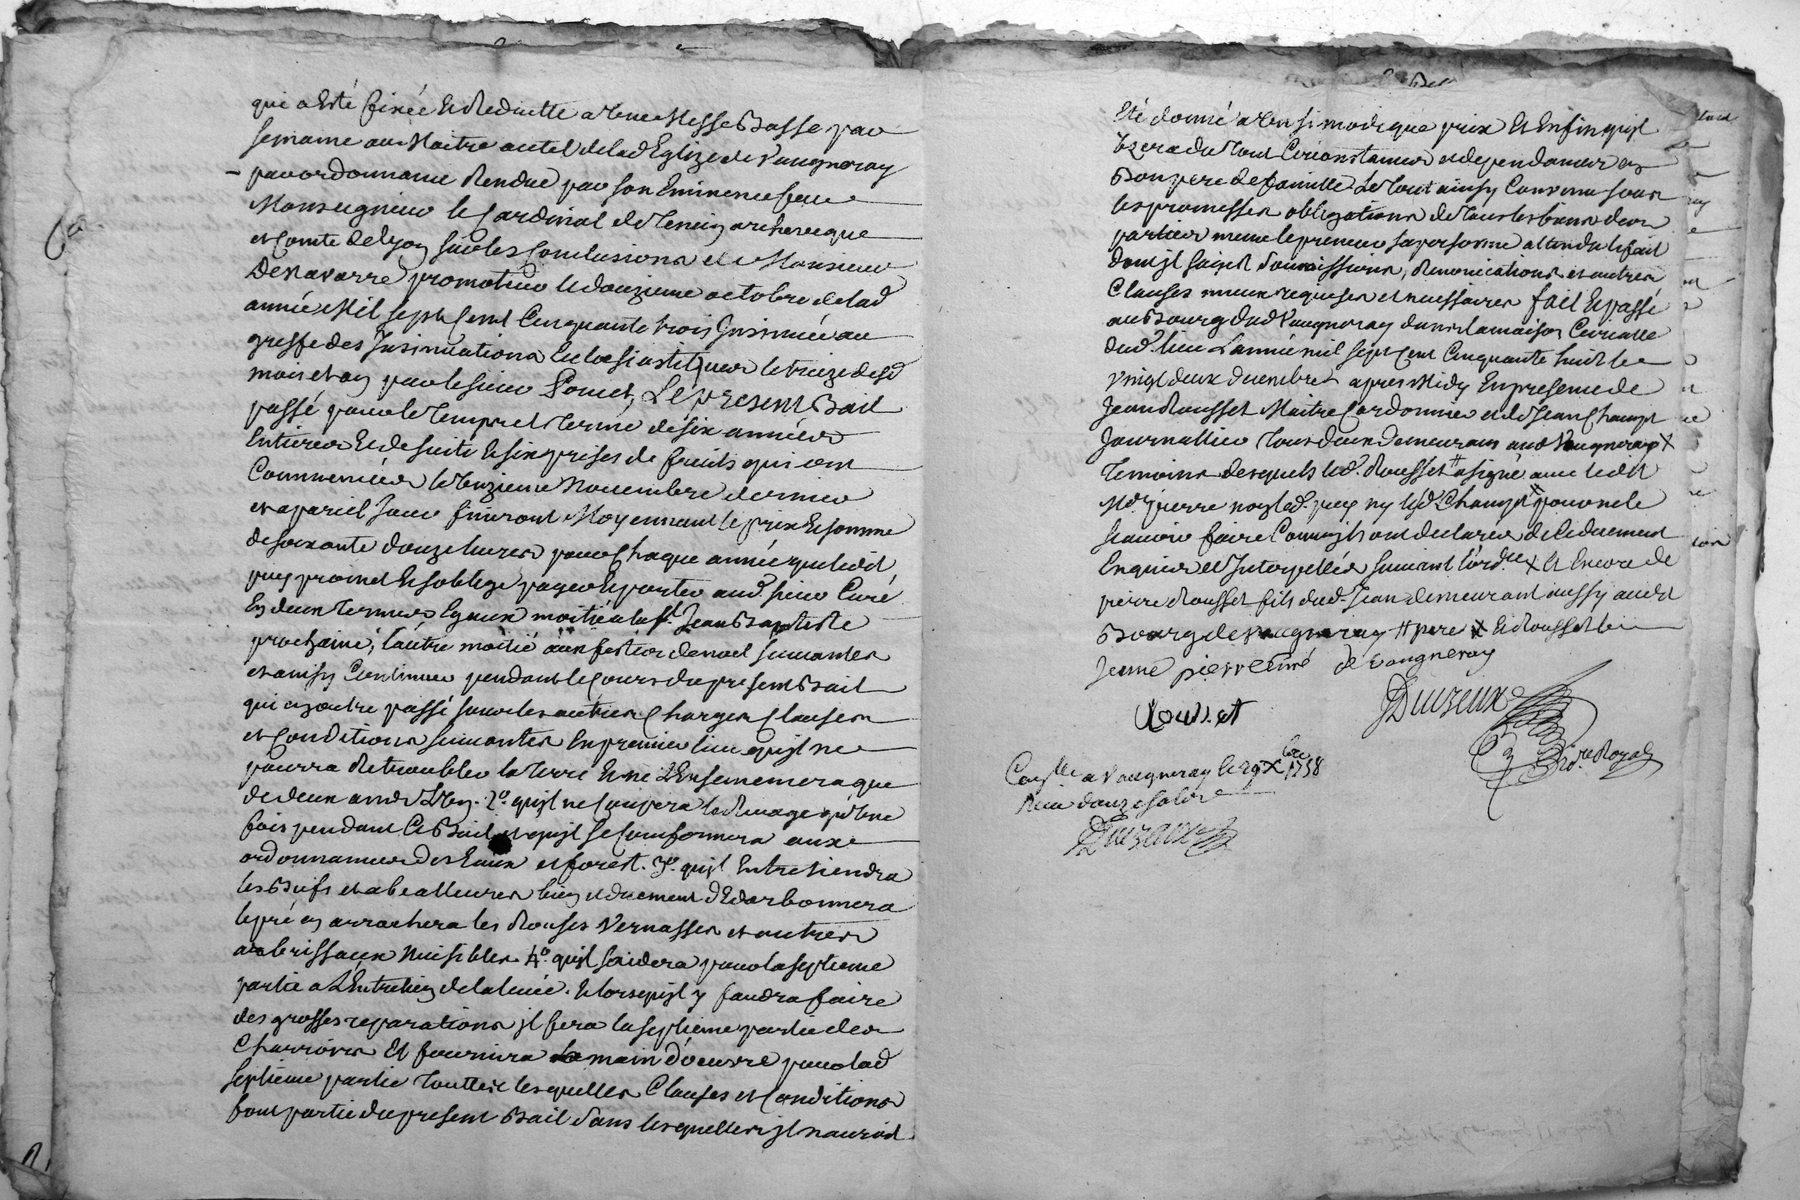 qui a Esté fixée Et Reduitte a Une Messe Basse par
semaine au Maitre autel de lad Eglize de Vaugneray
par ordonnance Rendue par son Eminence feue
Monseigneur le Cardinal de Tencin archeveque
et Comte de Lyon sur les Conclusions de Monsieur
De Navarre promoteur le douzieme octobre de lad
année Mil sept Cent Cinquante trois Insinuée au
greffe des Insinuations Eclesiastiques le treize desd
mois et an par le sieur Poncet, Le present Bail
passé pour le Temps et Terme de six années
Entieres Et de suite Et six prises de fruits qui ont
Commencées le Onzieme Novembre dernier
et a pareil Jour finiront Moyennant le prix Et somme
de soixante douze livres pour Chaque année que led
puy promet Et soblige payer Et porter aud. sieur Curé
En deux Termes Egaux moitié a la st. Jean Baptiste
prochaine, l'autre moitié aux festes de noel suivantes
et ainsy Continuer pendant le Cours du present Bail
qui en outre passé sous les autres Charges Clauses
et Conditions suivantes En premier lieu qu'jl ne
pourra Retroubler la Terre Et ne L'Ensemencera que
de deux ans L'Un. 2º. qu'jl ne Coupera le Rivage qu'Une
fois pendant Ce Bail et qu'jl se Conformera aux
ordonnances Des Eaux et forest. 3º. qu'jl Entretiendra
les Biefs et abealleures bien et duement Et
le pré en arrachera les Ronses Vernasses et autres
arbrissaux Nuisibles. 4º. qu'jl s'aidera pour la septieme
partie a L'Entretien de la . Et lorsqu'jl y faudra faire
des grosses reparations jl fera la septieme partie des
Charrois Et fournira la main d'oeuvre pour lad
septieme partie Touttes lesquelles Clauses et Conditions
font partie du present Bail sans lesquelles jl n'auroit
Eté donné a Un si modique prix Et Enfin qu'jl
Uzera du Tout Circonstances et dependances En
Bon pere de famille Le Tout ainsy Convenu sous
les promesses obligations de Tous les biens des
parties meme le preneur sa personne attendu le fait
dont jl s'agit soumissions, Renonciations et autres
Clauses mieux requises et necessaires fait Et passé
au Bourg dud Vaugneray dans la maison Curialle
dud. lieu L'année mil sept Cent Cinquante huit le
Vingt deux decembre apres Midy En presence de
Jean Rousset Maitre Cordonnier et de Jean Champt
Journallier Tous deux demeurans aud Vaugneray X
Temoins desquels led. Rousset # a signé avec ledit
Md. pierre non led. puy ny led Champt # pour ne le
scavoir faire Comm'jls ont declarés de Ce duement
Enquis et Interpellés suivant l'ord.ce X Et Encore de
pierre Rousset fils dud. Jean demeurant aussy audit
Bourg de Vaugneray # pere X Et Rousset le
Jeune pierre curé de Vaugneray
Rousset
JDuizeux
Nore. Royal
Con.llé a Vaugneray le 29 Xbre 1758
Reçu douze sols
JDuizeux